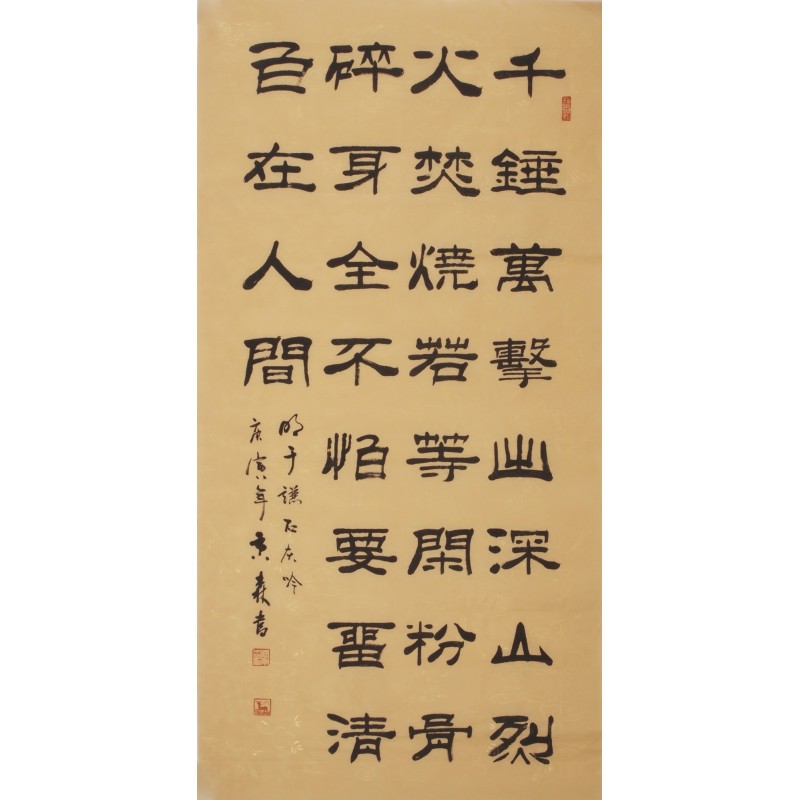 千錘萬擊出深山烈
火焚燒若等閑粉骨
碎身全不怕要留清
白在人間
明于謙石灰吟
庚寅年森書